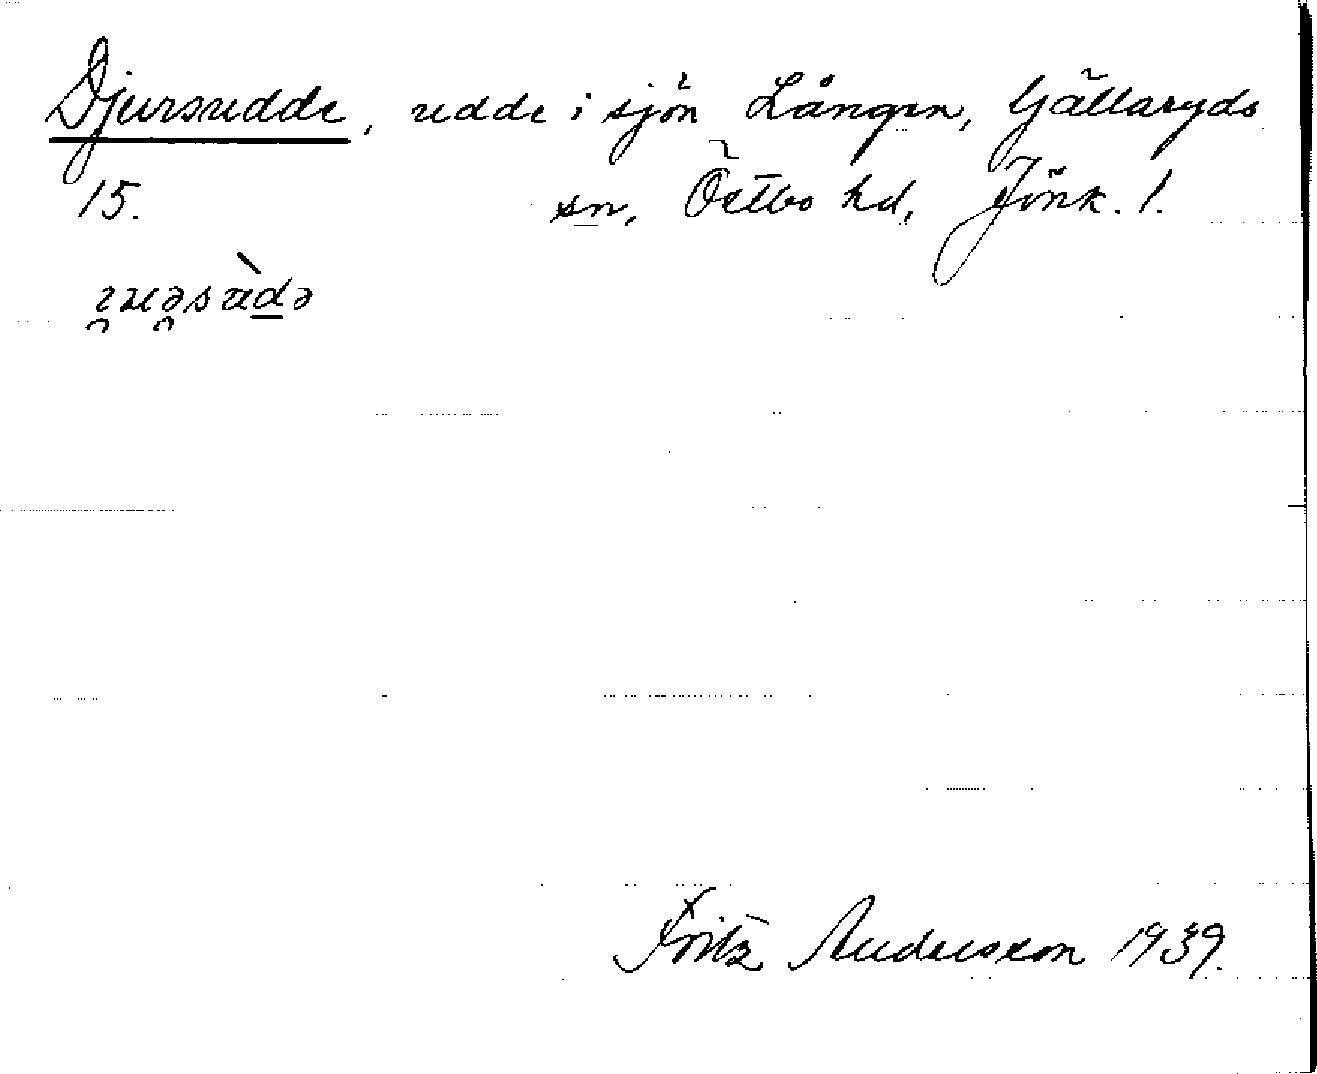 Djursudde, udde i sjön Lången, Gällaryds
15. sn, Östbo hd, Jönk. l.
Fritz Andersson 1939.